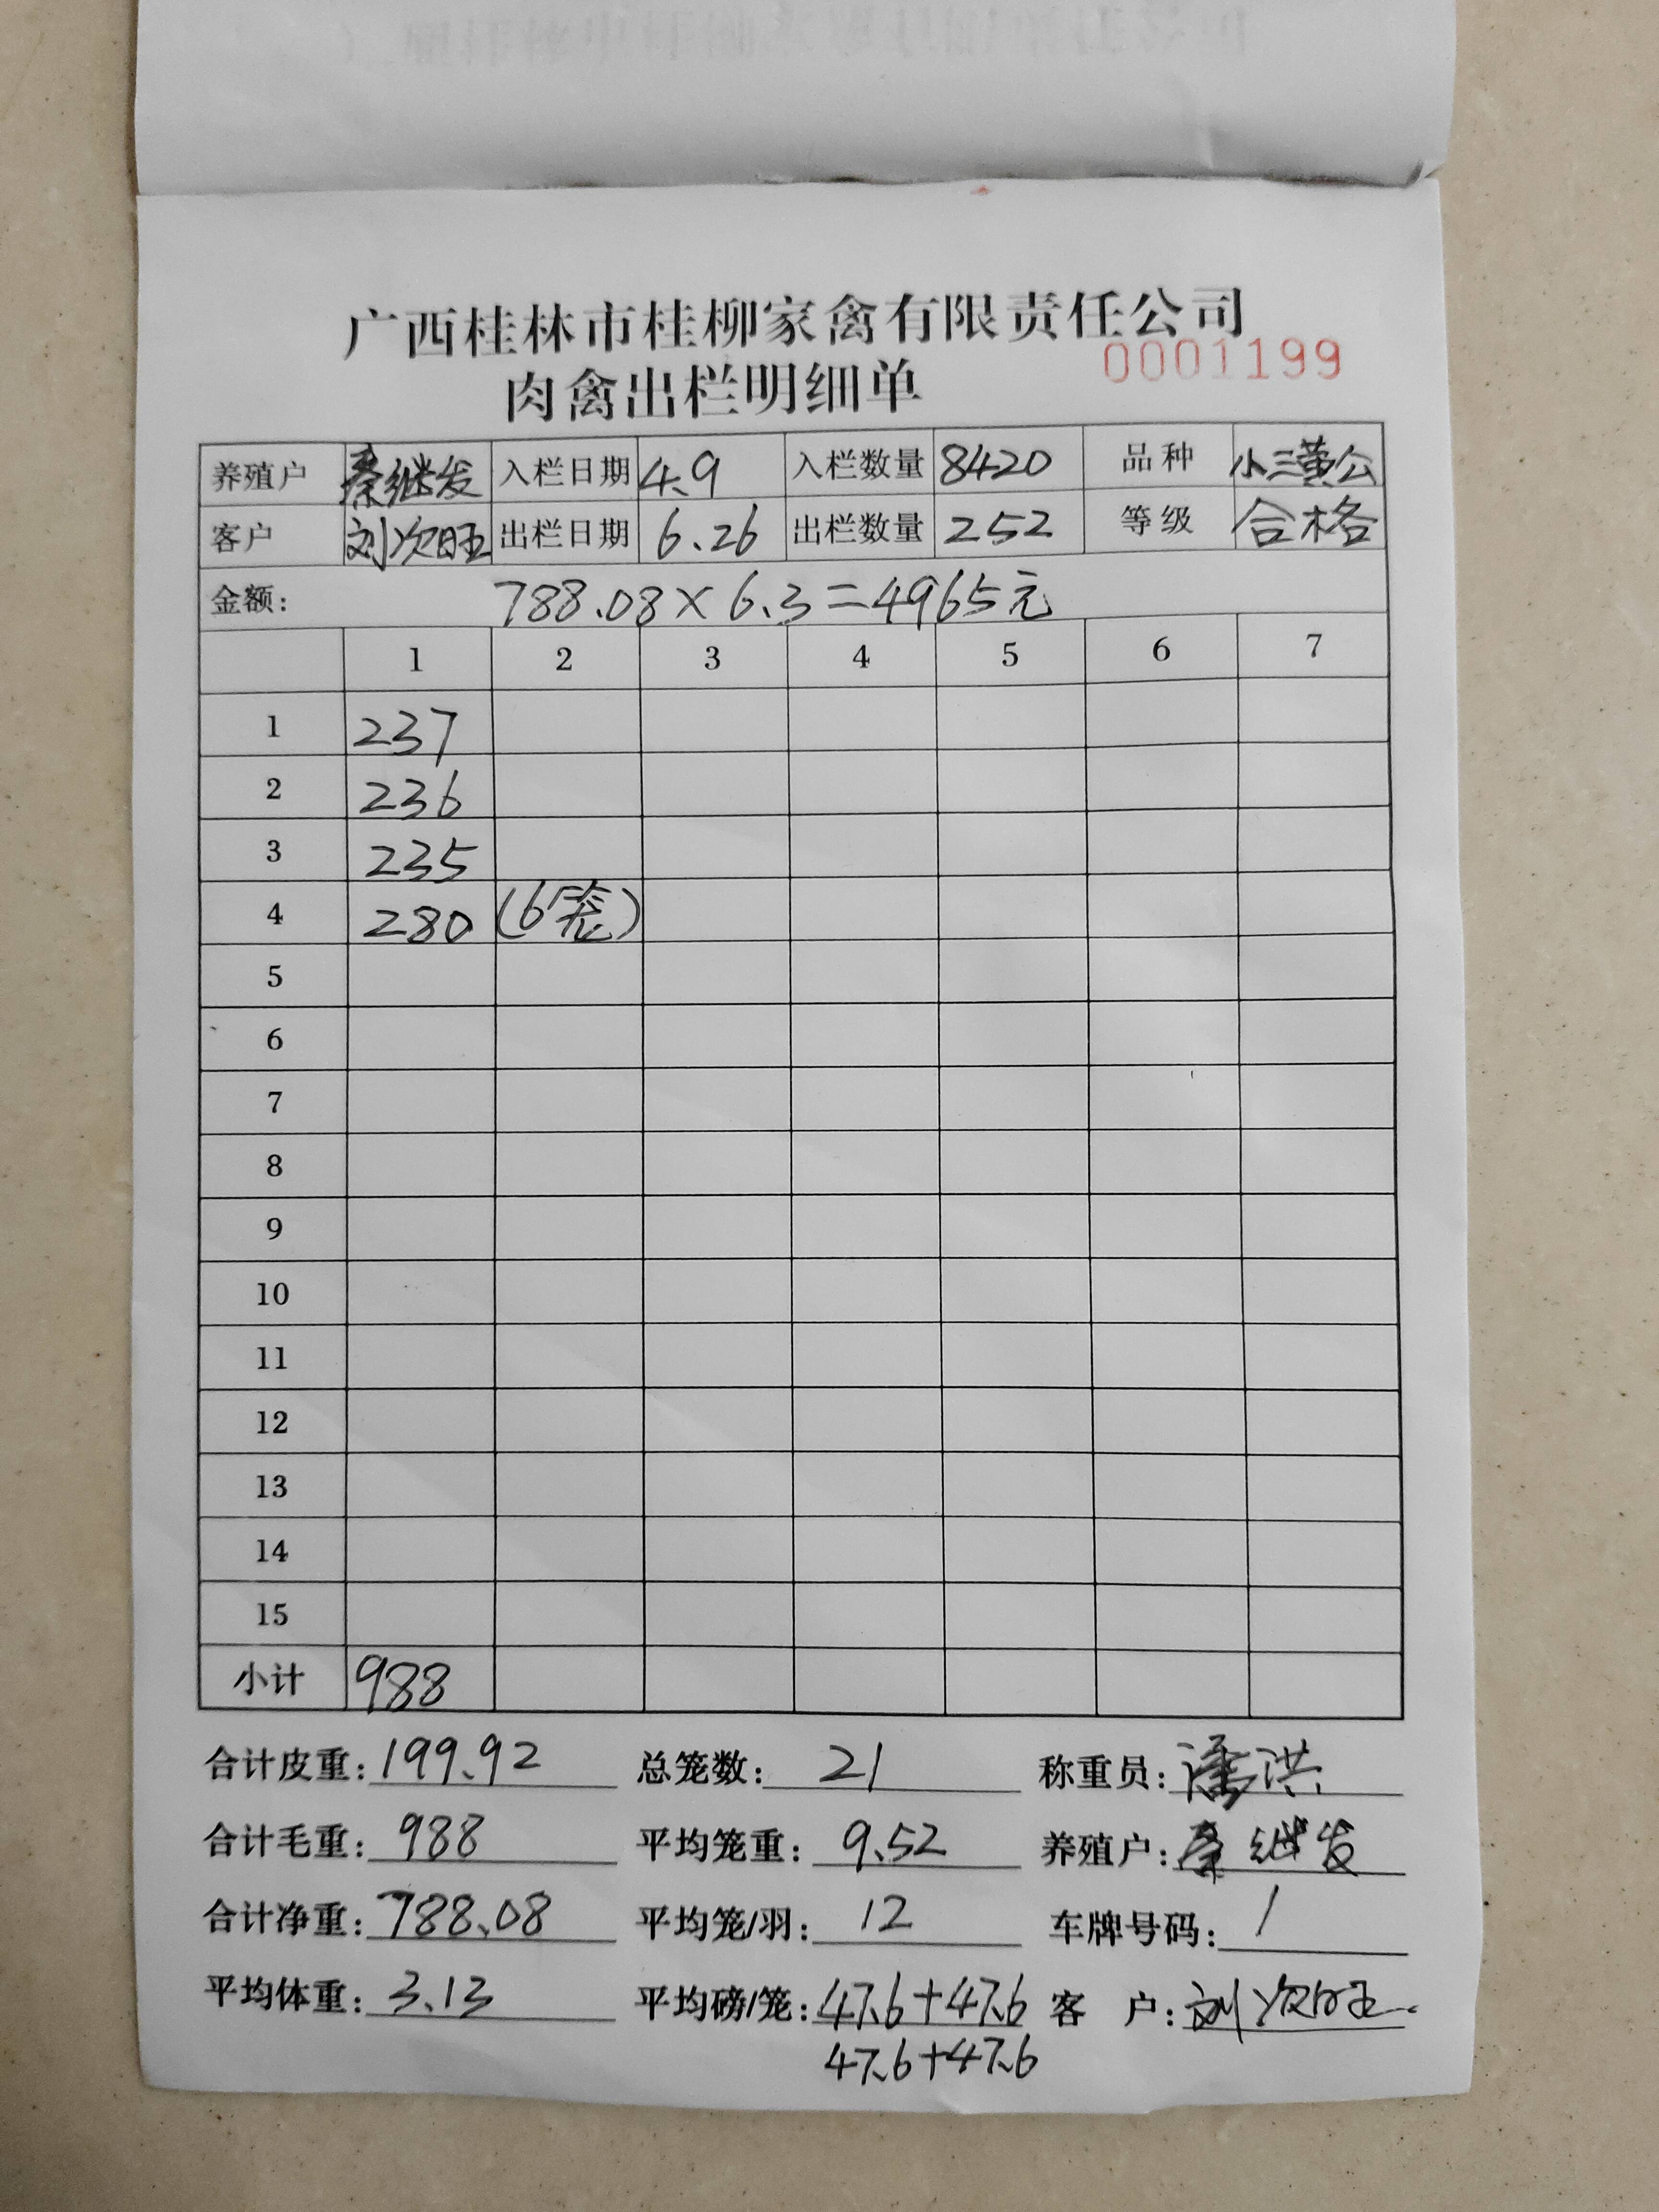 广西桂林市桂柳家禽有限责任公司
0001199
肉禽出栏明细单
养殖户 秦继发 入栏日期 4.9 入栏数量 8420 品种 小三黄公
客户 刘次旺 出栏日期 6.26 出栏数量 252 等级 合格
金额: 788.08×6.3=4965元
1 2 3 4 5 6 7
1 237
2 236
3 235
4 280 (6笼)
5
6
7
8
9
10
11
12
13
14
15
小计 988
合计皮重: 199.92 总笼数: 21 称重员: 潘洪
合计毛重: 988 平均笼重: 9.52 养殖户: 秦继发
合计净重: 788.08 平均笼/羽: 12 车牌号码: /
平均体重: 3.13 平均磅/笼: 47.6+47.6 客 户: 刘次旺
47.6+47.6